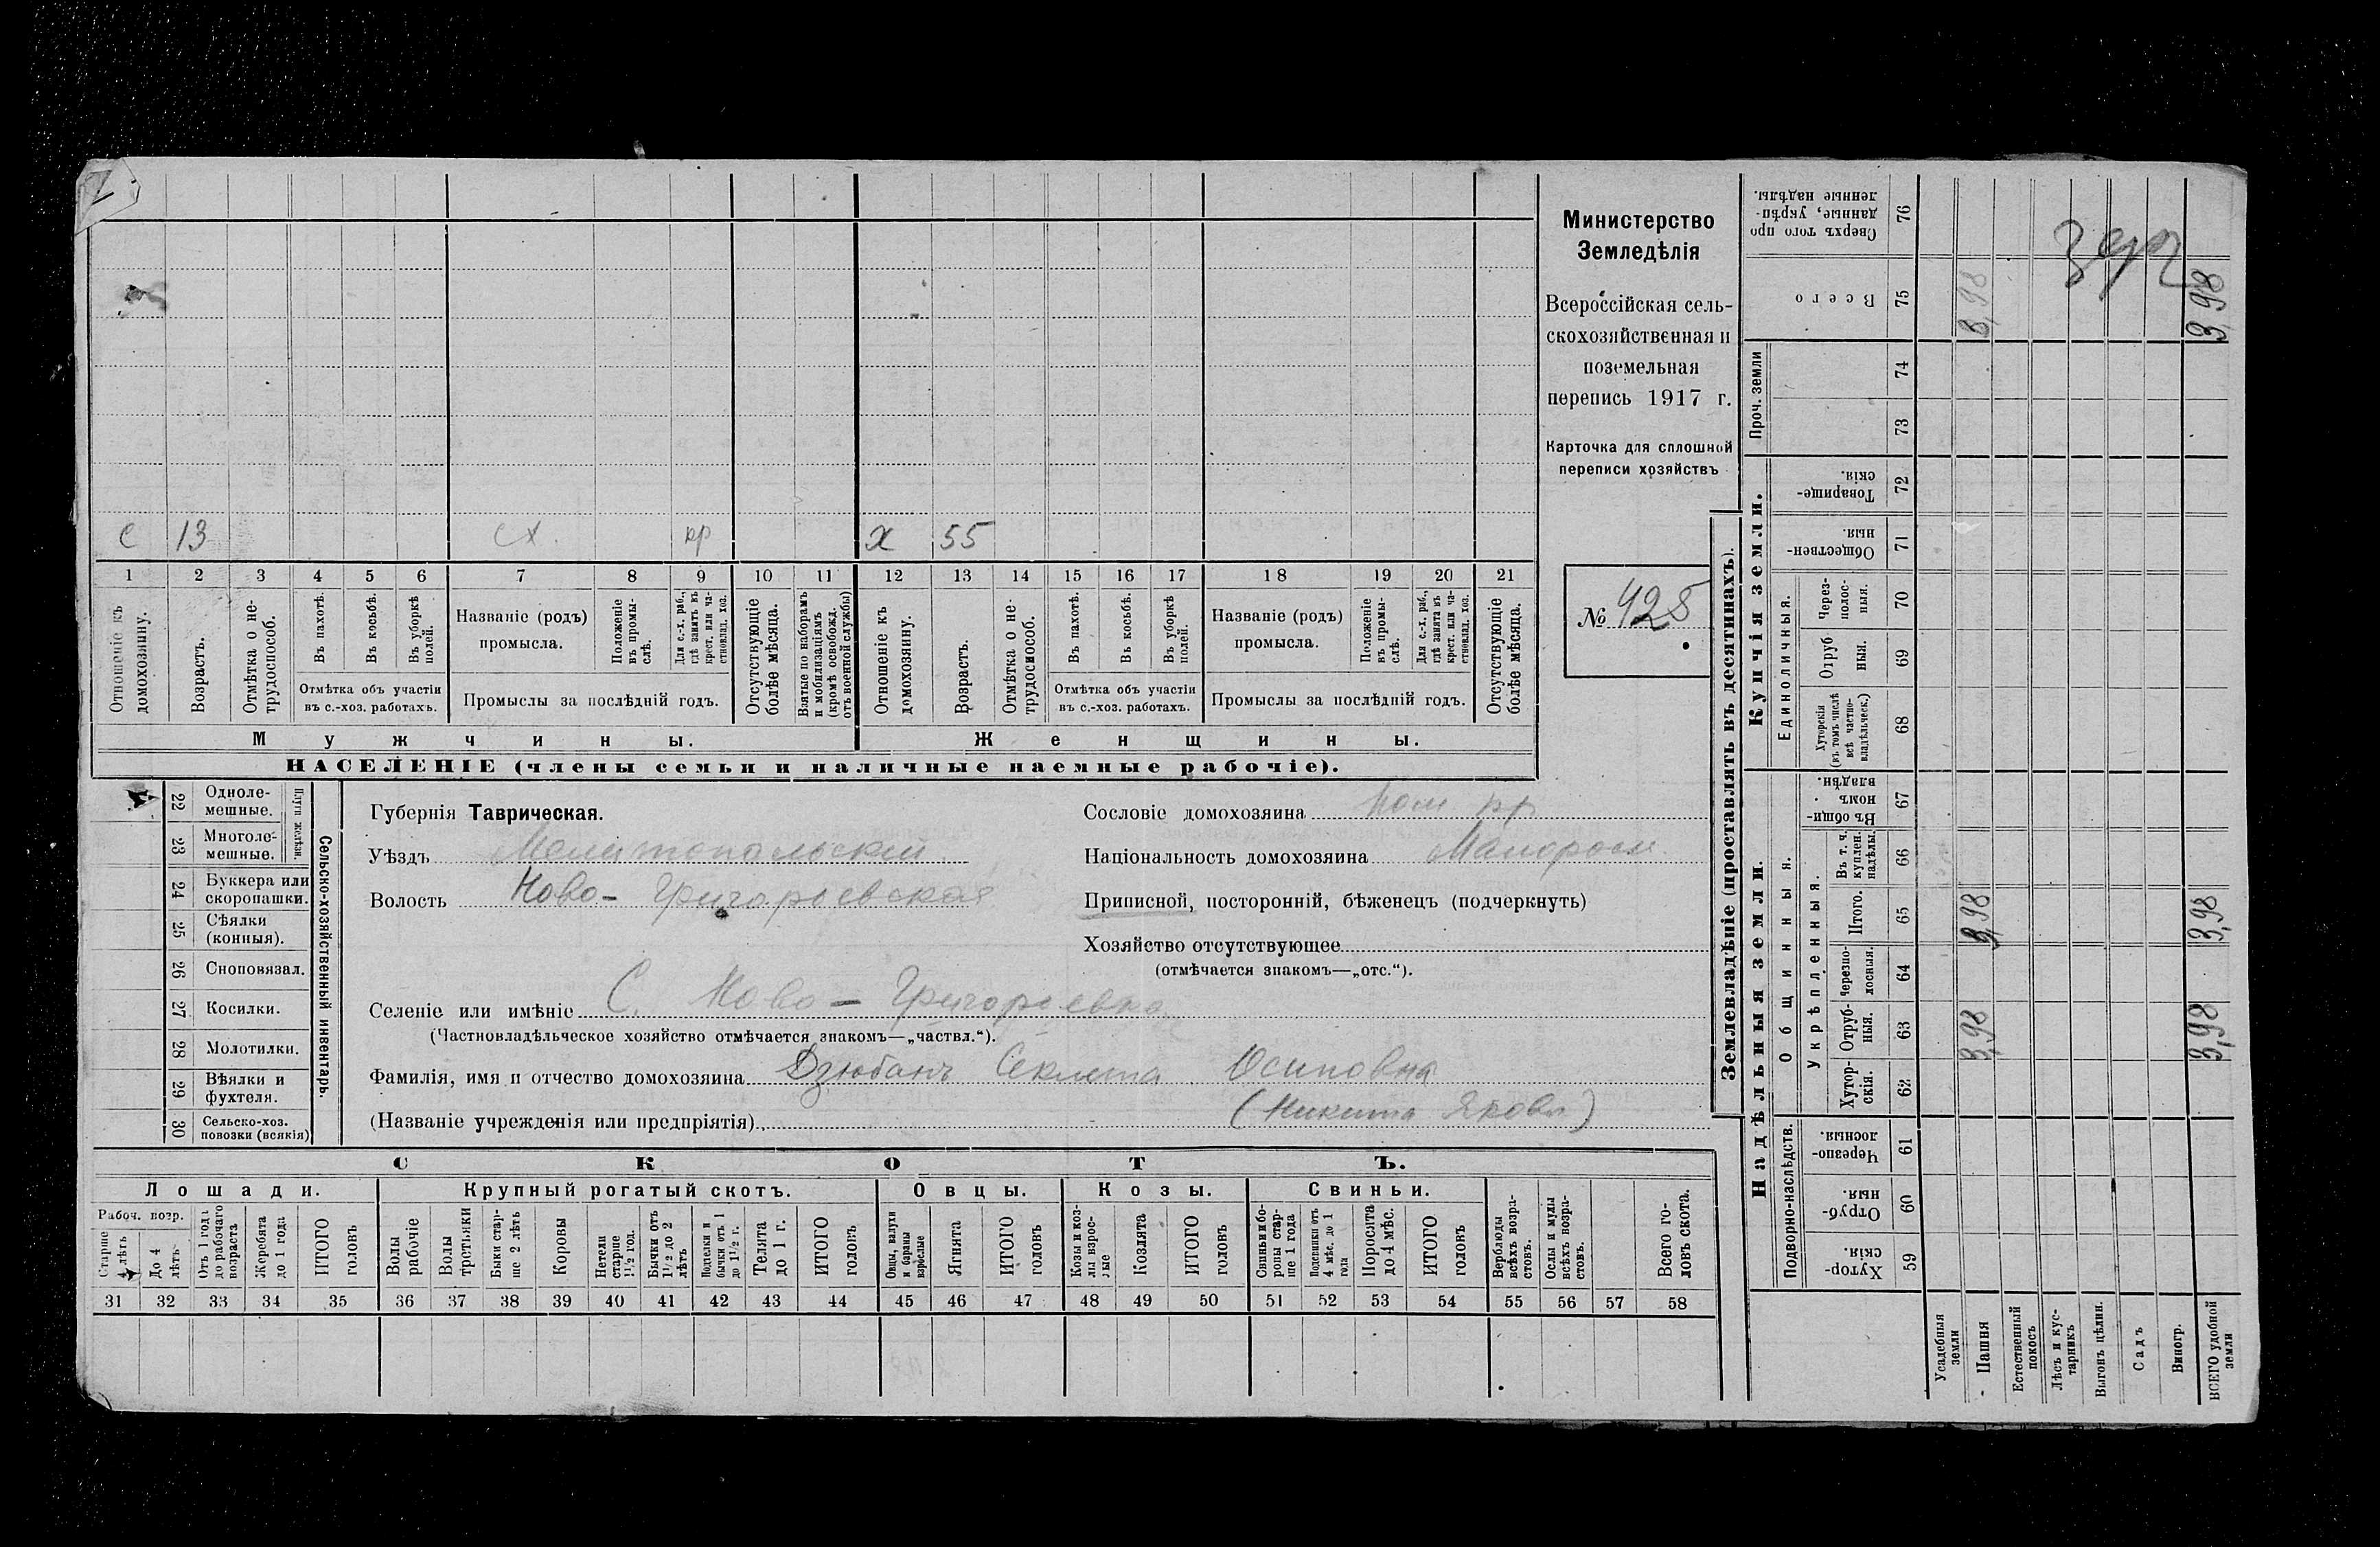 с 13 сх. кр х 55
1 2 3 4 5 6 7 8 9 10 11 12 13 14 15 16 17 18 19 20 21
Отношеніе къ домохозяину.
Возрастъ.
Отмѣтка о не-трудоспособ.
Въ пахотѣ.
Въ косьбѣ.
Въ уборкѣ полей.
Отмѣтка объ участіи
въ с.-хоз. работахъ.
Названіе (родъ)
промысла.
Положеніе въ промы-слѣ.
Для с.-х. раб., гдѣ занятъ въ крест. или ча-стновлад. хоз.
Промыслы за послѣдній годъ.
Отсутствующіе болѣе мѣсяца.
Взятые по наборамъ и мобилизаціямъ (кромѣ освобожд. отъ военной службы)
Отношеніе къ домохозяину.
Возрастъ.
Отмѣтка о не-трудоспособ.
Въ пахотѣ.
Въ косьбѣ.
Въ уборкѣ полей.
Отмѣтка объ участіи
въ с.-хоз. работахъ.
Названіе (родъ)
промысла.
Положеніе въ промы-слѣ.
Для с.-х. раб., гдѣ занята въ крест. или ча-стновлад. хоз.
Промыслы за послѣдній годъ.
Отсутствующіе болѣе мѣсяца.
Мужчины. Женщины.
НАСЕЛЕНІЕ (члены семьи и наличные наемные рабочіе).
Министерство
Земледѣлія
Всероссійская сель-
скохозяйственная и
поземельная
перепись 1917 г.
Карточка для сплошной
переписи хозяйствъ
№ 425
22 Одноле-мешные.
23 Многоле-мешные.
Плуги желѣзн.
24 Буккера или скоропашки.
25 Сѣялки (конныя).
26 Сноповязал.
27 Косилки.
28 Молотилки.
29 Вѣялки и фухтеля.
30 Сельско-хоз. повозки (всякія)
Сельско-хозяйственный инвентарь.
Губернія Таврическая.
Уѣздъ Мелитопольскій
Волость Ново-Григорьевская
Селеніе или имѣніе С. Ново-Григорьевка
(Частновладѣльческое хозяйство отмѣчается знакомъ—„частвл.“).
Фамилія, имя и отчество домохозяина Дзюбанъ Секлета Осиповна
(Названіе учрежденія или предпріятія) (Никита Яковл)
Сословіе домохозяина кр
Національность домохозяина Малоросс.
Приписной, посторонній, бѣженецъ (подчеркнуть)
Хозяйство отсутствующее
(отмѣчается знакомъ—„отс.“).
СКОТЪ.
Лошади. Крупный рогатый скотъ. Овцы. Козы. Свиньи.
Рабоч. возр.
Старше 4 лѣтъ
До 4 лѣтъ
Отъ 1 года до рабочаго возраста
Жеребята до 1 года
ИТОГО головъ
Волы рабочіе
Волы третьяки
Быки стар-ше 2 лѣтъ
Коровы
Нетели старше 1½ год.
Бычки отъ 1½ до 2 лѣтъ
Подтелки и бычки отъ 1 до 1½ г.
Телята до 1 г.
ИТОГО головъ
Овцы, валухи и бараны взрослые
Ягнята
ИТОГО головъ
Козы и коз-лы взрос-лые
Козлята
ИТОГО головъ
Свиньи и бо-ровы стар-ше 1 года
Подсвинки отъ 4 мѣс. до 1 года
Поросята до 4 мѣс.
ИТОГО головъ
Верблюды всѣхъ возра-стовъ.
Ослы и мулы всѣхъ возра-стовъ.
Всего го-ловъ скота.
31 32 33 34 35 36 37 38 39 40 41 42 43 44 45 46 47 48 49 50 51 52 53 54 55 56 57 58
Землевладѣніе (проставлять въ десятинахъ).
Надѣльныя земли. Купчія земли.
Проч. земли
Подворно-наслѣдств.
Общинныя.
Укрѣпленныя.
Единоличныя.
Сверхъ того про данные, укрѣп-ленные надѣлы. 76
Всего 75 3,98 3,98
74
73
Товарище-скія. 72
Обществен-ныя. 71
Через-полос-ныя. 70
Отруб ныя. 69
Хуторскія (въ томъ числѣ всѣ частно-владѣльческ.) 68
Въ общи-номъ владѣн. 67
Въ т. ч. куплен. надѣлы. 66
Итого. 65 3,98 3,98
Черезпо-лосныя. 64
Отруб-ныя. 63 3,98 3,98
Хутор-скія. 62
Черезпо-лосныя. 61
Отруб-ныя. 60
Хутор-скія. 59
Усадебныя земли
Пашня
Естественный покосъ
Лѣсъ и кус-тарникъ
Выгонъ цѣлин.
Садъ
Виногр.
ВСЕГО удобной земли